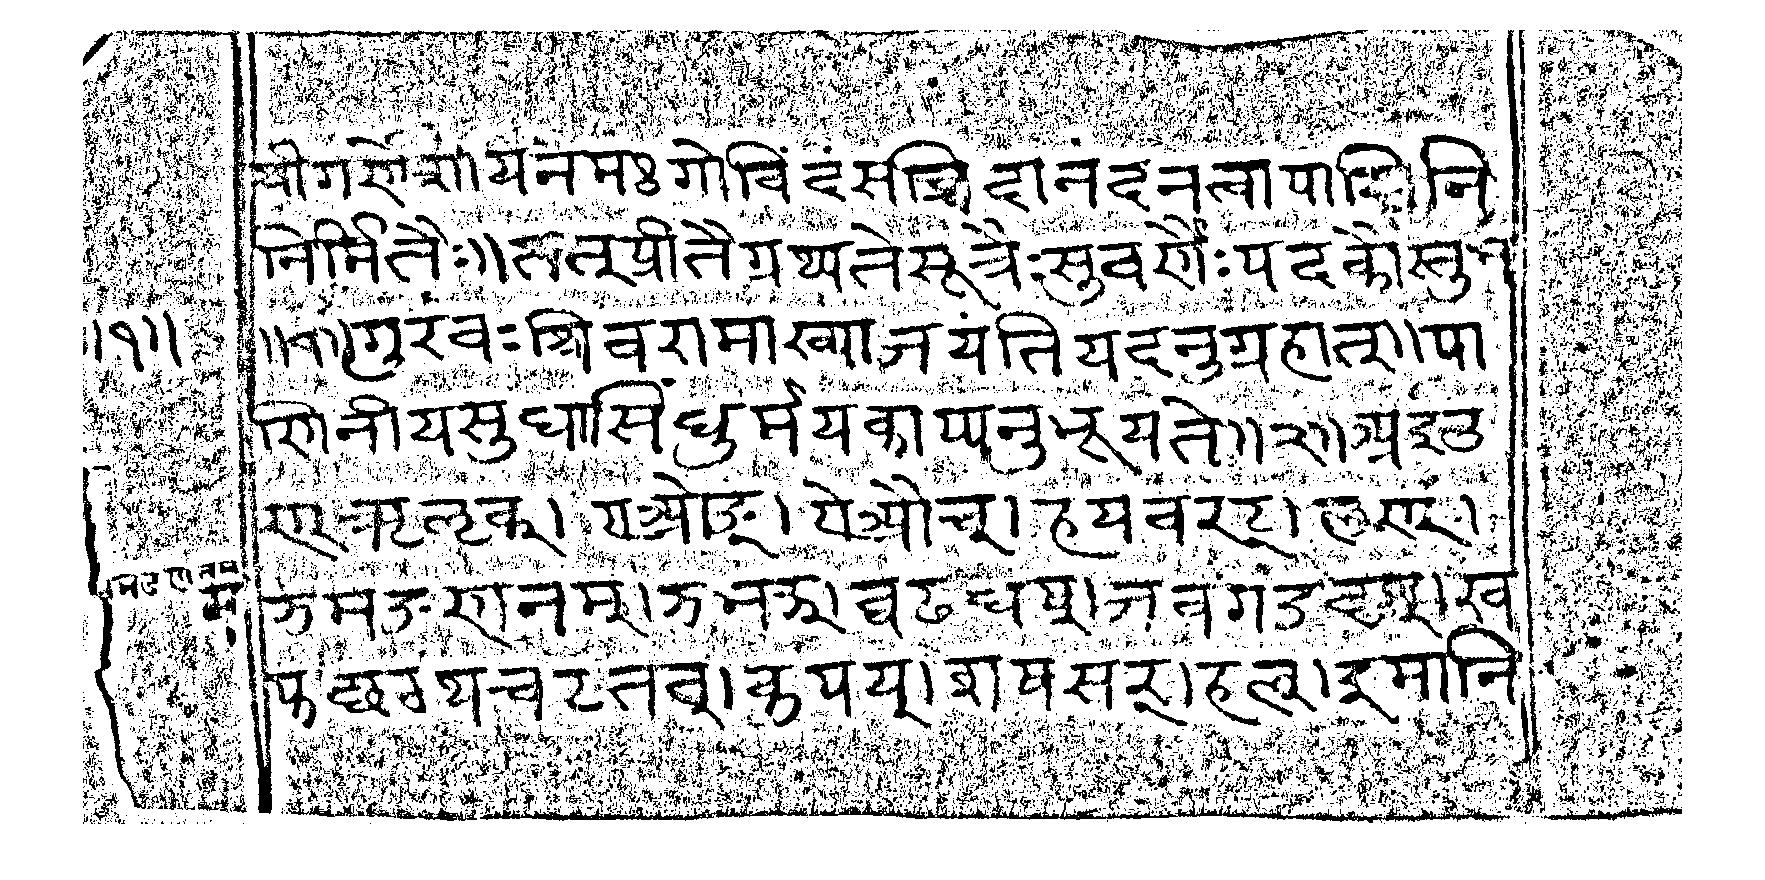 श्रीगणेशाय नमः गोविंदं सच्चिदानंदं नत्वा पाणिनि
निर्मितैः॥ तत्प्रीतै ग्रथ्यते सूत्रैः सुवर्णैः पदकौस्तुभ
॥१॥ ॥१॥ गुरवः शिवरामाख्या जयंति यदनुग्रहात्॥ पा
णिनीयसुधासिंधुर्मयकाप्यनुभूयते॥२॥ अइउ
ण् ऋऌक्। एओङ्। ऐऔच्। हयवरट्। लण्।
ञमङणनम्। झभञ्। घढधष्। जबगडदश्। ख
फछठथचटतव्। कपय्। शषसर्। हल्। इमानि